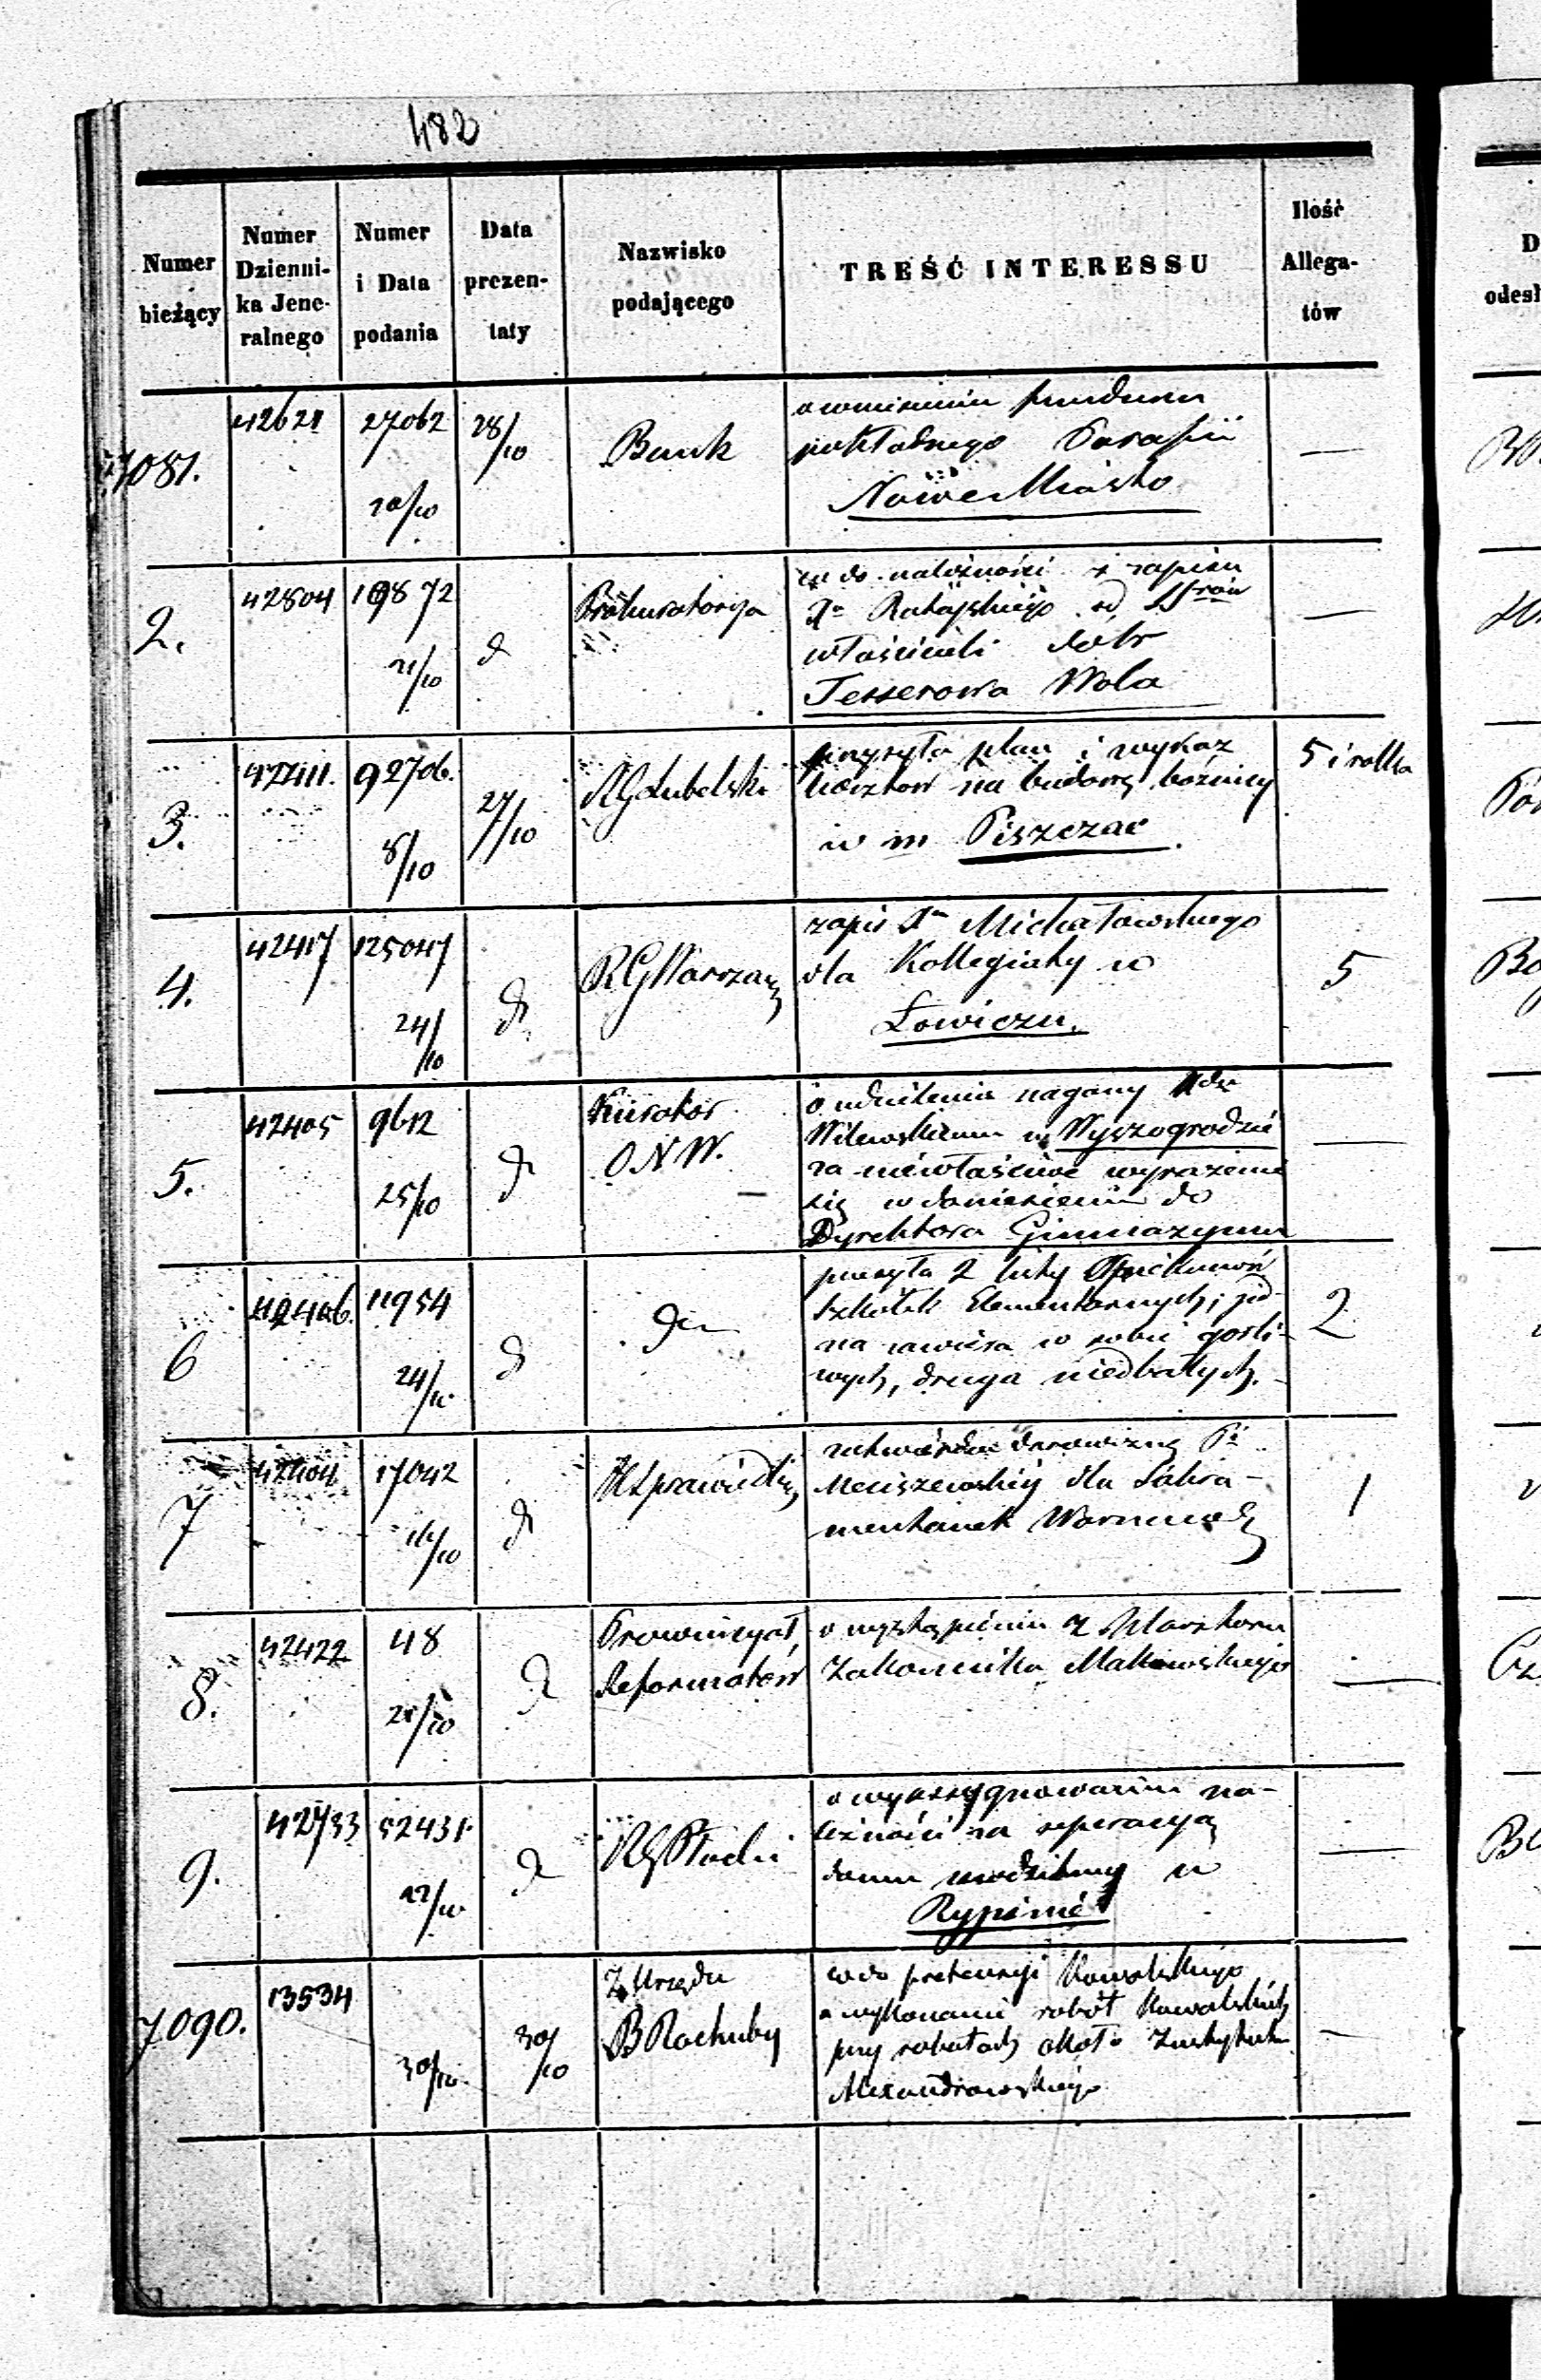 482
Numer bieżący
Numer Dzienni-ka Jene-ralnego
Numer i Data podania
Data prezen-taty
Nazwisko podającego
TREŚĆ INTERESSU
Ilość Allega-tów
7081.
42621
27062
28/10
Bank
o wniesieniu funduszu
pokładnego Parafii
Nowe Miasto
—
2.
42804
19872
21/10
d
Prokuratorya
w do należności z zapisu
Xa Ratajskiego od SSrów
właścicieli dóbr
Tesserowa Wola
—
3.
42411.
92706.
8/10
27/10
RG Lubelski
przysyła plan i wykaz
kosztow na budowę bożnicy
w m Piszczac.
5 i rolka
4.
42417
125047
24/10
d
RG Warszaw
zapis Xa Michałowskiego
dla Kollegiaty w
Łowiczu.
5
5.
42405
9612
25/10
d
Kurator
O N W.
o udzielenie nagany
Wilewskiemu w Wyszogrodzie
za niewłaściwe wyrażenie
się w doniesieniu do
Dyrektora Gimnazyum
—
6
42406.
11954
24/10
d
przesyła 2 listy Opiekunów
Szkółek Elementarnych; jed-
na zawiera w sobie gorli-
wych, druga niedbałych.
2
7
42404
17042
d
KSprawiedliw
zatwierdza darowiznę Pi
Meciszewskiej dla Sakra-
mentanek Warszaws
1
8.
42422
48
d
Prowincyał
Reformatów
o wystąpieniu z Klasztoru
Zakonnika Makowskiego
—
9.
42733
52431.
d
RG Płocki
o wyassygnowaniu na-
leżności za reperacyą
domu modlitwy w
Rypinie
—
7090.
13534
30/10
30/10
Z Urzędu
B Rachuby
w do pretensyi Kowalskiego
o wykonanie robót Kowalskich
przy robotach około Instytutu
Alexandrowskiego
—